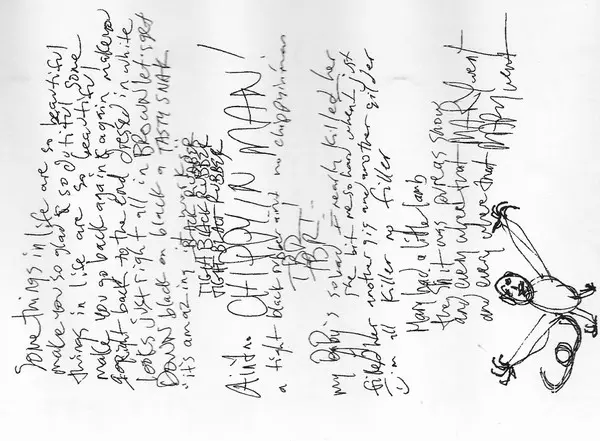 Some things in life are so beautiful
make you so glad & so dutiful some
things in life are so beautiful
make you go back again & again makes you
right back to the end dressed in white
looks just right all in BROWN let's get
DOWN black on black a TASTY SNAK
it's amazing
TIGHT BLACK RUBBER
TIGHT BLACK RUBBER
Aint no CHIPPYIN MAN!
a tight black rubber aint no chippyin man
my BABY is so hard I nearly killed her
she hit me so hard when I just
her another gis and another gilder
i'm all killer no filler
Mary had a little lamb
was as snow
and everywhere that MARY went
and every where that MARY went